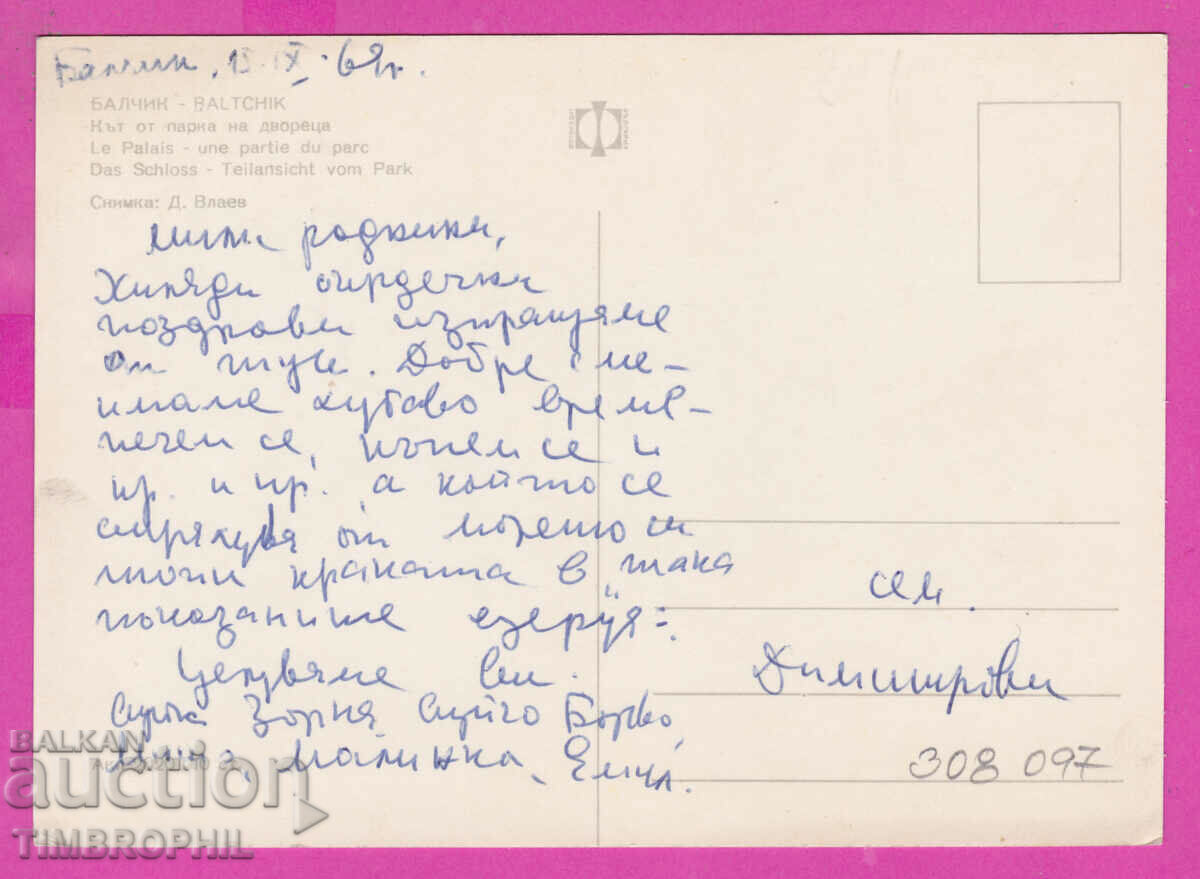 Балчик, 15.IX.69г.
БАЛЧИК - BALTCHIK
Кът от парка на двореца
Le Palais - une partie du parc
Das Schloss - Teilansicht vom Park
Снимка: Д. Влаев
Мили роднини,
Хиляди сърдечни
поздрави изпращаме
от тук. Добре сме -
имаме хубаво време -
печем се, къпем се и
пр. и пр. а който се
страхува от морето си
топи краката в "така
показаните езерця
Целуваме ви.
Зорка Борко,
Малинка, Емил.
сем.
Димитрови
308 097
BALKAN
auction
TIMBROPHIL